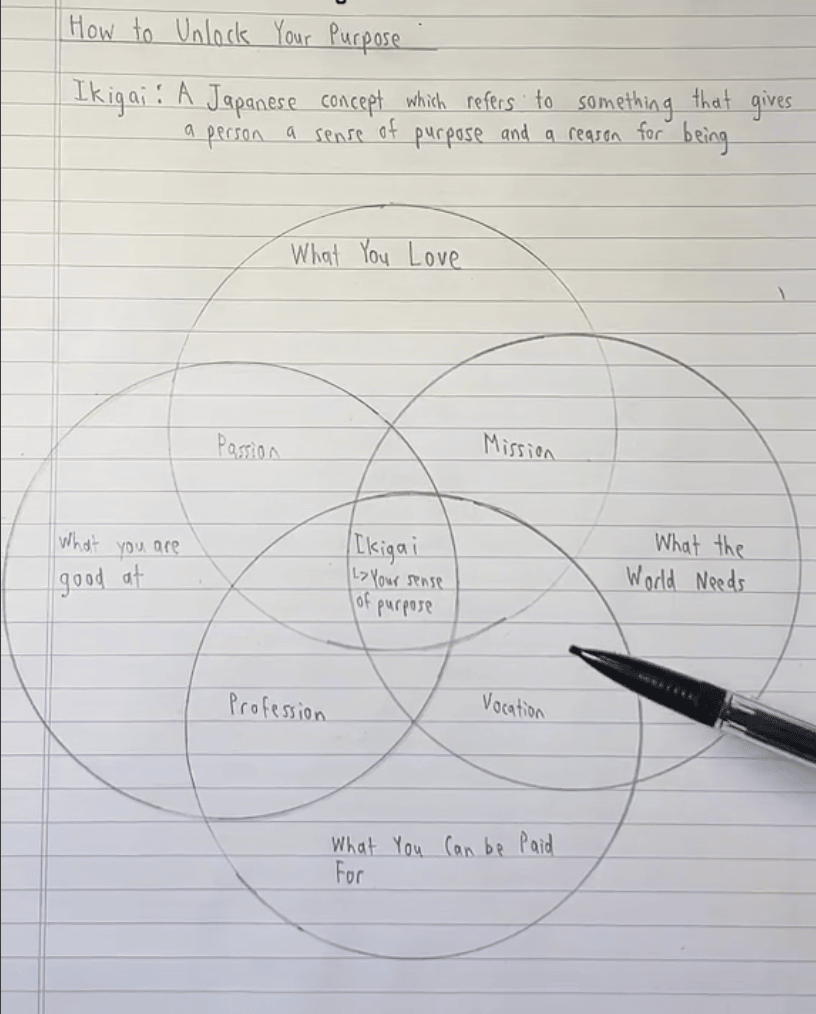 How to Unlock Your Purpose
Ikigai: A Japanese concept which refers to something that gives
a person a sense of purpose and a reason for being
What You Love
Passion
Mission
What you are
good at
Ikigai
↳Your sense
of purpose
What the
World Needs
Profession
Vocation
What You Can be Paid
For